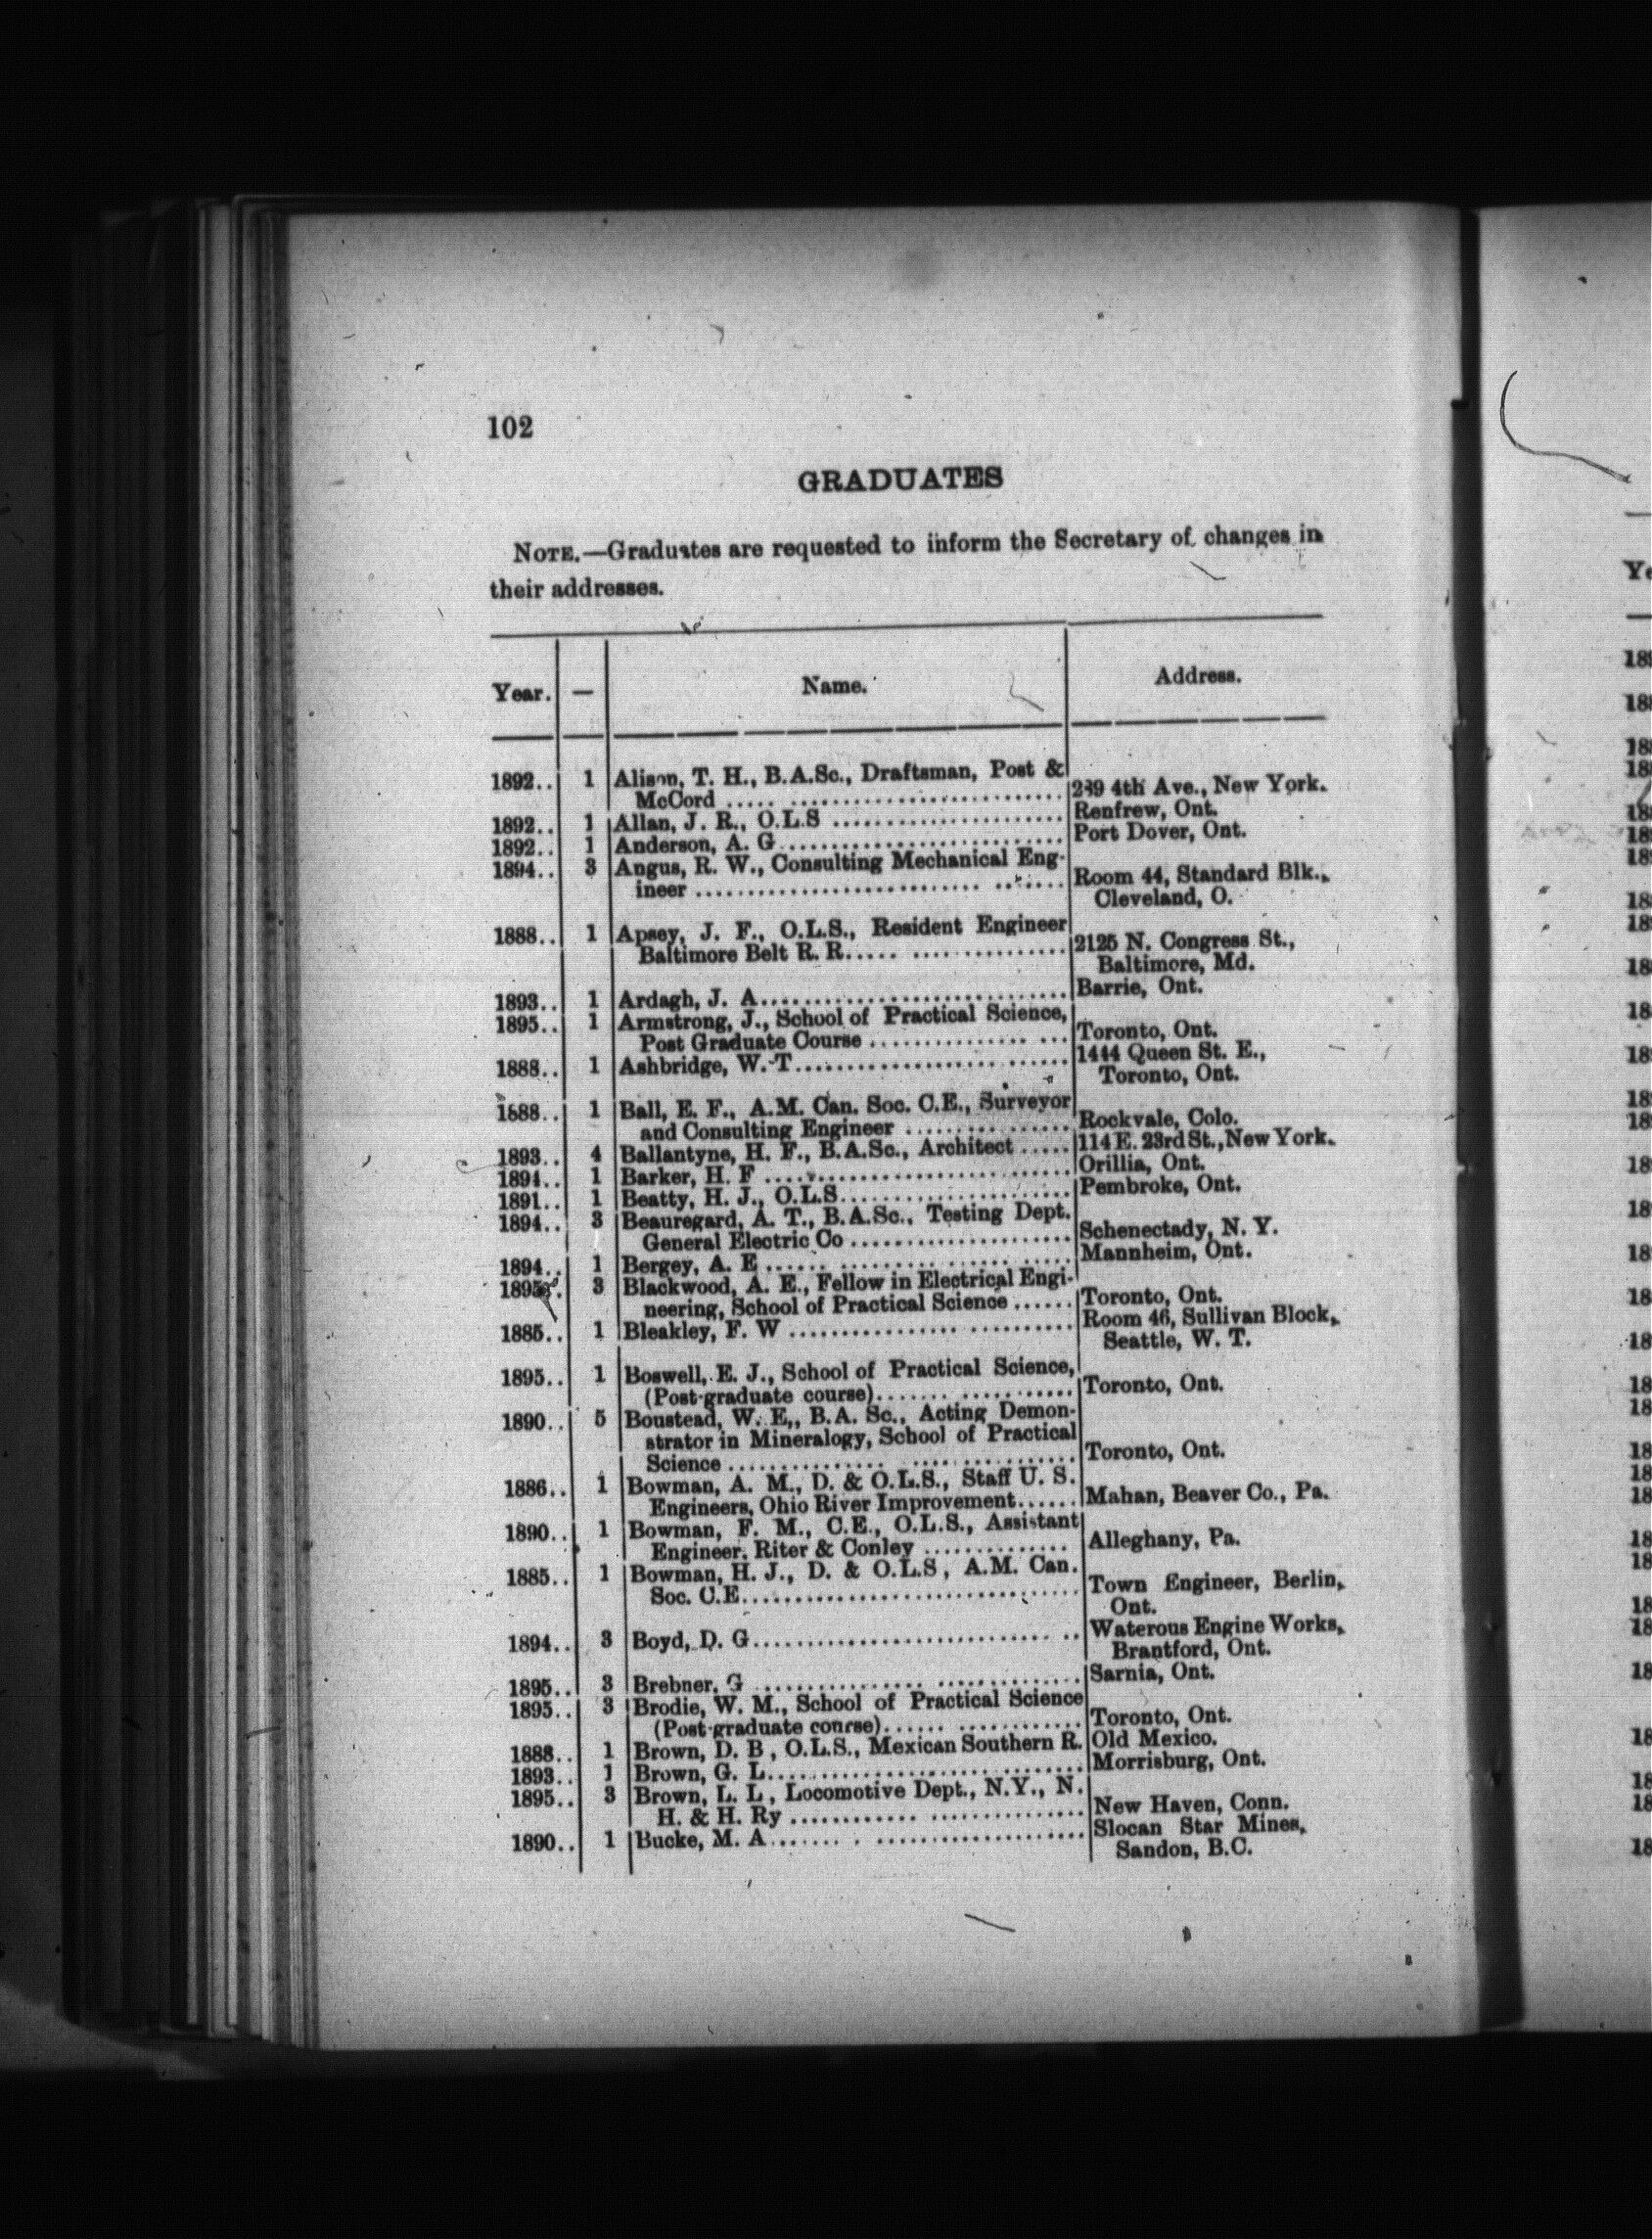 102
GRADUATES
NOTE.—Graduates are requested to inform the Secretary of changes in
their addresses.
Year. — Name. Address.
1892.. 1 Alison, T. H., B.A.Sc., Draftsman, Post &
McCord ..... ......................... 239 4th Ave., New York.
1892.. 1 Allan, J. R., O.L.S ..................... Renfrew, Ont.
1892.. 1 Anderson, A. G.......................... Port Dover, Ont.
1894.. 3 Angus, R. W., Consulting Mechanical Eng-
ineer .......................... ....... Room 44, Standard Blk.,
Cleveland, O.
1888.. 1 Apsey, J. F., O.L.S., Resident Engineer
Baltimore Belt R. R..... ............... 2125 N. Congress St.,
Baltimore, Md.
1893.. 1 Ardagh, J. A............................ Barrie, Ont.
1895.. 1 Armstrong, J., School of Practical Science,
Post Graduate Course .............. ... Toronto, Ont.
1888.. 1 Ashbridge, W. T................... ...... 1444 Queen St. E.,
Toronto, Ont.
1888.. 1 Ball, E. F., A.M. Can. Soc. C.E., Surveyor
and Consulting Engineer ............... Rockvale, Colo.
1893.. 4 Ballantyne, H. F., B.A.Sc., Architect ..... 114 E. 23rd St., New York.
1894.. 1 Barker, H. F ............................ Orillia, Ont.
1891.. 1 Beatty, H. J., O.L.S..................... Pembroke, Ont.
1894.. 3 Beauregard, A. T., B.A.Sc., Testing Dept.
General Electric Co .................... Schenectady, N. Y.
1894.. 1 Bergey, A. E ...... ............. ..... Mannheim, Ont.
1895.. 3 Blackwood, A. E., Fellow in Electrical Engi-
neering, School of Practical Science ...... Toronto, Ont.
1885.. 1 Bleakley, F. W ................ .......... Room 46, Sullivan Block,
Seattle, W. T.
1895.. 1 Boswell, E. J., School of Practical Science,
(Post-graduate course)....... .......... Toronto, Ont.
1890.. 5 Boustead, W. E,, B.A. Sc., Acting Demon-
strator in Mineralogy, School of Practical
Science ............... ............... Toronto, Ont.
1886.. 1 Bowman, A. M., D. & O.L.S., Staff U. S.
Engineers, Ohio River Improvement...... Mahan, Beaver Co., Pa.
1890.. 1 Bowman, F. M., C.E., O.L.S., Assistant
Engineer. Riter & Conley .............. Alleghany, Pa.
1885.. 1 Bowman, H. J., D. & O.L.S, A.M. Can.
Soc. C.E............................... Town Engineer, Berlin,
Ont.
1894.. 3 Boyd, D. G............................ .. Waterous Engine Works,
Brantford, Ont.
1895.. 3 Brebner, G ................ ............. Sarnia, Ont.
1895.. 3 Brodie, W. M., School of Practical Science
(Post-graduate course)...... ........... Toronto, Ont.
1888.. 1 Brown, D. B, O.L.S., Mexican Southern R. Old Mexico.
1893.. 1 Brown, G. L............................. Morrisburg, Ont.
1895.. 3 Brown, L. L, Locomotive Dept., N.Y., N.
H. & H. Ry ............ .............. New Haven, Conn.
1890.. 1 Bucke, M. A....... . ................... Slocan Star Mines,
Sandon, B.C.